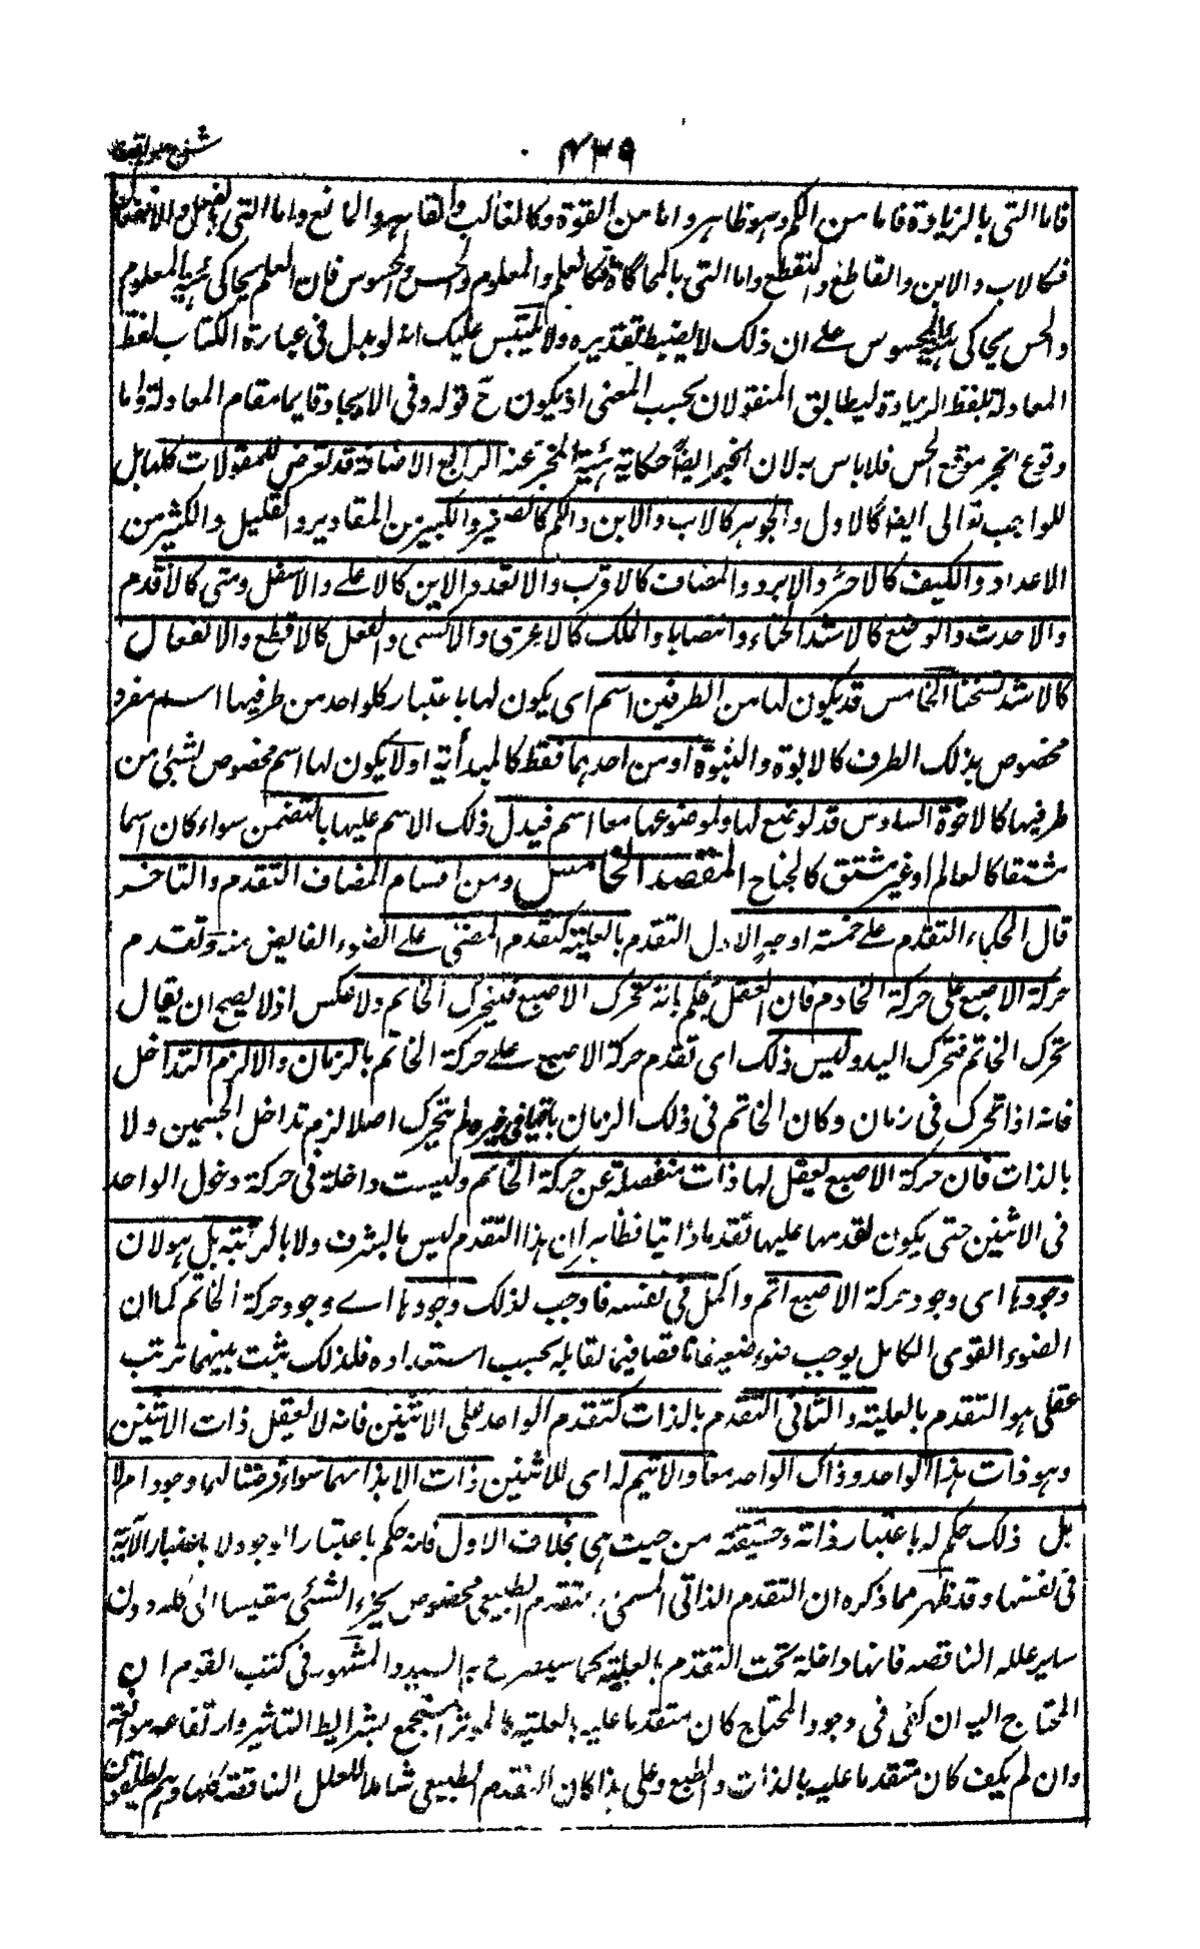 شرح مواقف
۴۳۹
فاما التی بالزیادة فاما من الکم وهو ظاهر واما من القوة وکالغالب والقاهر والمانع واما التی بالفعل والانفعال
فکالاب والابن والقاطع والمنقطع واما التی بالمحاکاة فکالعلم والمعلوم والحس والمحسوس فان العلم یحاکی هیئة المعلوم
والحس یحاکی هیئة المحسوس علی ان ذلک لا یضبط تقدیره ولا یلتبس علیک انه لو بدل فی عبارة الکتاب لفظ
المعادلة بلفظ الزیادة لیطابق المنقولان بحسب المعنی اذ یکون ح قوله وفی الایجاد قایما مقام المعادلة واما
وقوع الخبر موقع الحس فلا باس به لان الخبر ایضًا حکایة هیئة المخبر عنه الرابع الاضافة قد تعرض للمقولات کلها بل
للواجب تعالی ایضا کالاول والجوهر کالاب والابن والکم کالصغیر والکبیر من المقادیر والقلیل والکثیر من
الاعداد والکیف کالاحر والابرد والمضاف کالاقرب والابعد والاین کالاعلے والاسفل ومتی کالاقدم
والاحدث والوضع کالاشد انحناء وانتصابا والملک کالاعری والاکسی والفعل کالاقطع والانفعال
کالاشد تسخنا الخامس قد یکون لها من الطرفین اسم ای یکون لها باعتبار کل واحد من طرفیها اسم مفرد
مخصوص بذلک الطرف کالابوة والبنوة او من احدهما فقط کالمبدأیة او لا یکون لها اسم مخصوص بشئ من
طرفیها کالاخوة السادس قد یوضع لها ولموضوعها معا اسم فیدل ذلک الاسم علیها بالتضمن سواء کان اسما
مشتقا کالعالم او غیر مشتق کالجناح المقصد الخامس ومن اقسام المضاف التقدم والتاخر
قال الحکماء التقدم علی خمسة اوجه الاول التقدم بالعلیة کتقدم المضئ علی الضوء الفائض منه وتقدم
حرکة الاصبع علی حرکة الخاتم فان العقل یحکم بانه تحرک الاصبع فتحرک الخاتم ولا عکس اذ لا یصح ان یقال
تحرک الخاتم فتحرک الید ولیس ذلک ای تقدم حرکة الاصبع علی حرکة الخاتم بالزمان والا لزم التداخل
فانه اذا تحرک فی زمان وکان الخاتم فی ذلک الزمان باقیا فی حیزه لم یتحرک اصلا لزم تداخل الجسمین ولا
بالذات فان حرکة الاصبع یعقل لها ذات منفصلة عن حرکة الخاتم ولیست داخلة فی حرکة دخول الواحد
فی الاثنین حتی یکون تقدمها علیها تقدما ذاتیا فظاهر ان هذا التقدم لیس بالشرف ولا بالرتبة بل هو لان
وجودها ای وجود حرکة الاصبع اتم واکمل فی نفسه فاوجب لذلک وجودها اے وجود حرکة الخاتم کما ان
الضوء القوی الکامل یوجب ضوء ضعیفا ناقصا فیما یقابله بحسب استعداده فلذلک یثبت بینهما ترتب
عقلی هو التقدم بالعلیة والثانی التقدم بالذات کتقدم الواحد علی الاثنین فانه لا یعقل ذات الاثنین
وهو ذات هذا الواحد وذاک الواحد معا والایتم له ای للاثنین ذات الا بذاتهما سواء فرضنا لهما وجود ام لا
بل ذلک حکم له باعتبار ذاته وحقیقته من حیث هی بخلاف الاول فانه حکم باعتبار الوجود لا باعتبار الماهیة
فی نفسها وقد ظهر مما ذکره ان التقدم الذاتی المسمی بالتقدم الطبیعی مخصوص بجزء الشئی مقیسا الی کله دون
سایر علله الناقصه فانها داخلة تحت التقدم بالعلیة کما سیصرح به السید والمشهور فی کتب القوم ان
المحتاج الیه ان کفی فی وجود المحتاج کان متقدما علیه بالعلیة کالموثر المستجمع بشرایط التاثیر وارتفاعه موانعه
وان لم یکف کان متقدما علیه بالذات والطبع وعلی هذا کان التقدم الطبیعی شاملا للعلل الناقصة کلها وهم یطلقون